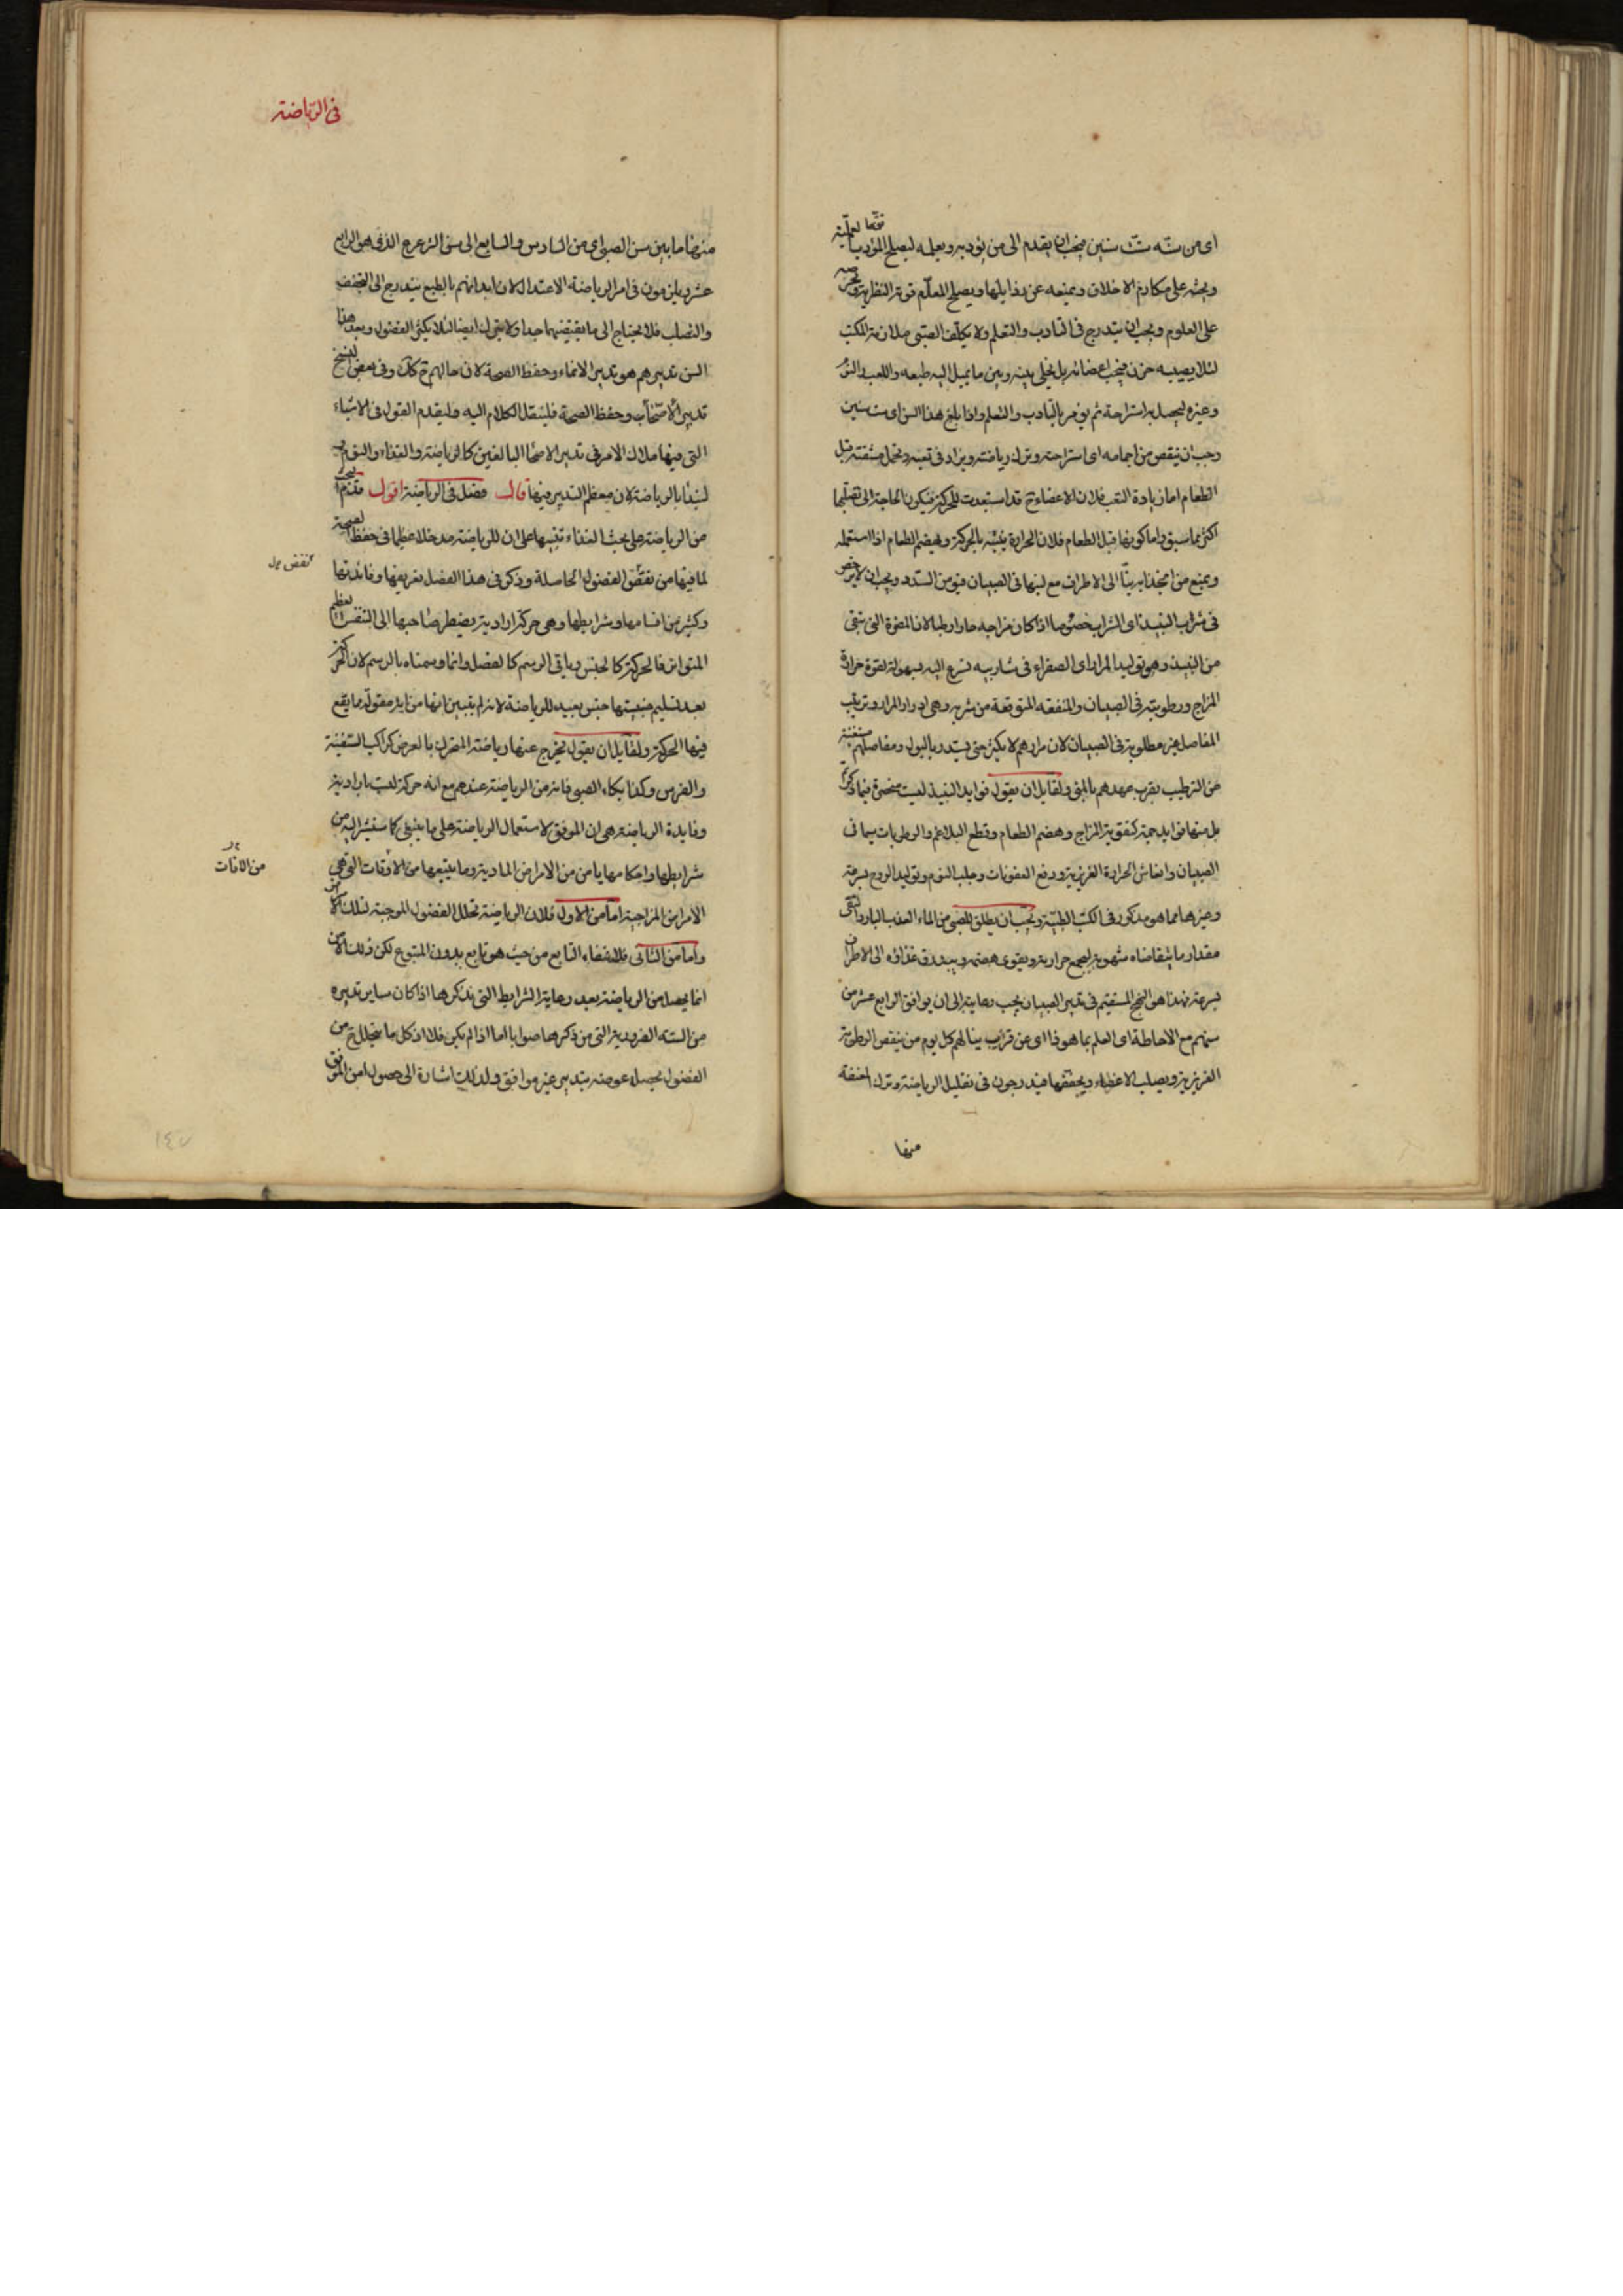 اى من سنه ست سنين فيجب ان يقدم الى من يؤدبه ويعلمه ليصلح المؤدب
ويحثه على مكارم الاخلاق ويمنعه عن رذايلها ويصلح المعلم قوته النظرية
على العلوم ويجب ان يتدرج فى التاديب والتعلم ولا يكلف الصبى ملازمة المكتب
لئلا يصيبه حزن فيجف اعضائه بل يخلى بينه وبين ما يميل اليه طبعه واللعب
وغيره ليحصل به استراحة ثم يؤمر بالتاديب والتعلم واذا بلغ هذا السن اى ست سنين
وجب ان ينقص من اجمامه اى استراحته وترك رياضته ويزاد فى تعبه وتحمل مشقته قبل
الطعام اما زيادة التعب فلان الاعضاء ح قد استعدت للحركة فيكون الحاجة الى تصلبها
اكثر مما سبق واما كونها قبل الطعام فلان الحرارة بالحركة ويهضم الطعام اذا استعمله
ويمنع من انجذابه نيّا الى الاطراف مع لينها فى الصبيان من السدد ويجب ان لا يرخص
فى شراب النبيذ اى الشراب خصوصا اذا كان مزاجه حارا رطبا لان المضرة التى تتقى
من النبيذ وهو توليد المرار اى الصفراء فى شاربيه تسرع اليه بسهولة لقوة حرارة
المزاج ورطوبته فى الصبيان والمنفعة المتوقعة من شربه وهى ادرار المرار وترطيب
المفاصل غير مطلوبة فى الصبيان لان مرارهم لا يكثر حتى يستدر بالبول ومفاصلهم مستغنية
عن الترطيب بقرب عهدهم بالمنى ولقايل ان يقول فوايد النبيذ ليست منحصرة فيما ذكرتم
بل منها فوايد جمة كتقوية المزاج وهضم الطعام وقطع البلاغم والرطوبات سيما فى
الصبيان وانعاش الحرارة الغريزية ورفع العفونات وجلب النوم وتوليد الروح بسرعة
وغيرها مما هو مذكور فى الكتب الطبية ويجب ان يطلق للصبى من الماء العذب البارد النقى
مقدار ما يتقاضاه شهوته ليجمع حرارته ويقوى هضمه ويبذرق غذاؤه الى الاطراف
بسرعة فهذا هو النهج المستقيم فى تدبير الصبيان يجب رعايته الى ان يوافق الرابع عشر من
سنهم مع الاحاطة اى العلم بما هو ذا اى عن قريب ينالهم كل يوم من ينقص الرطوبة
الغريزية ويصلب الاعضاء ويجففها فيتدرجون فى تقليل الرياضة وترك المعنفة
منها
فى الرياضة
منها ما بين سن الصبى اى من السادس والسابع الى سن الترعرع الذى هو الرابع
عشر ويلزمون فى امر الرياضة الاعتدال لان ابدانهم بالطبع يتدرج الى التجفف
والتصلب فلا يحتاج الى ما يقتضيهما جدا ولا يترك ايضا لئلا يكثر الفضول وبعد هذا
السن تدبيرهم هو تدبير الانماء وحفظ الصحة لان حالهم ح كذلك وفى بعض النسخ
تدبير الاصحاب وحفظ الصحة فلينقل الكلام اليه وليقدم القول فى الاشياء
التى فيها ملاك الامر فى تدبير الاصحا البالغين كالرياضة والغذاء والنوم
لنبدأ بالرياضة لان معظم التدبير فيها قال فصل فى الرياضة اقول قدم
من الرياضة على بحث الغذاء تنبيها على ان للرياضة مدخلا عظيما فى حفظ الصحة
لما فيها من نفض الفضول الحاصلة وذكر فى هذا الفصل تعريفها وفائدتها
نفض
وكثير من اقسامها وشرايطها وهى حركة ارادية يضطر صاحبها الى التنفس العظيم
المتواتر فالحركة كالجنس وباقى الرسم كالفصل وانما وسمناه بالرسم لان الحركة
بعد تسليم جنسيتها جنس بعيد للرياضة لانه لم يتبين انها من اى مقولة مما يقع
فيها الحركة ولقايل ان يقول يخرج عنها رياضة المتحرك بالعرض كراكب السفينة
والفرس وكذا بكاء الصبى فانه من الرياضة عندهم مع انه حركة ليست بارادية
وفايدة الرياضة هى ان الموفق لاستعمال الرياضة على ما ينبغى كما سنشير اليه من
شرايطها واحكامها يامن من الامراض المادية وما يتبعها من الاوقات التى هى
من الافات
الامراض المزاجية اما من الاول فلان الرياضة تحلل الفضول الموجبة لتلك الامراض
واما من الثانى فلانتفاء التابع من حيث هو تابع بدون المتبوع لكن ذلك الامن
انما يحصل من الرياضة بعد رعاية الشرايط التى نذكرها اذا كان ساير تدبيره
من الستة الضرورية التى من ذكرها صوابا اما اذا لم يكن فلا اذ كل ما يتحلل ح من
الفضول يحصل عوضه بتدبير غير موافق ولذلك اشارة الى حصول امن الموفق
١٤٧